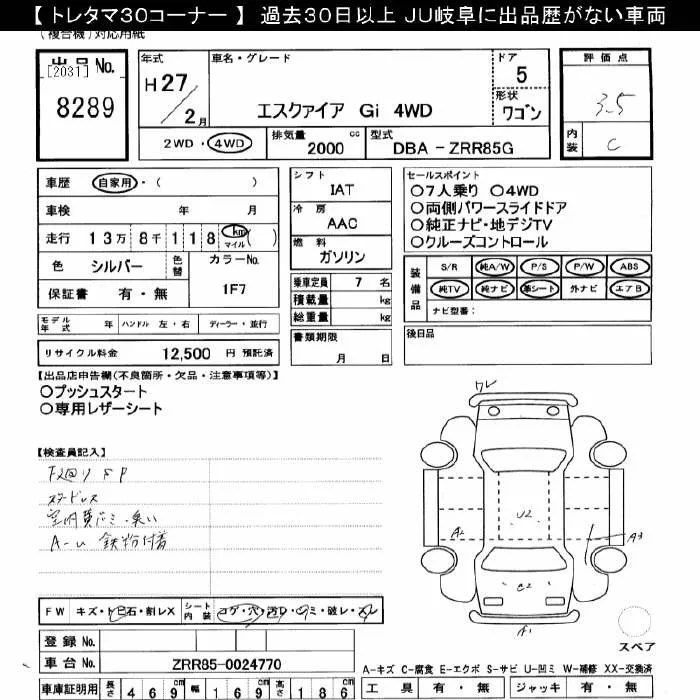 【 トレタマ30コーナー 】 過去30日以上 JU岐阜に出品歴がない車両
(複合機)対応用紙
出品 No.
[2031]
8289
年式
H27/2月
車名・グレード
エスクァイア Gi 4WD
ドア
5
形状
ワゴン
2WD・4WD
排気量 2000 cc
型式 DBA - ZRR85G
評価点
3.5
内装 C
車歴 自家用・( )
車検 年 月
走行 13万 8千 118 km マイル ( )
色 シルバー 色替 カラーNo. 1F7
保証書 有・無
モデル年式 年 ハンドル 左・右 ディーラー・並行
リサイクル料金 12,500 円 預託済
シフト
IAT
冷房
AAC
燃料
ガソリン
乗車定員 7 名
積載量 kg
総重量 kg
書類期限
月 日
セールスポイント
○7人乗り ○4WD
○両側パワースライドドア
○純正ナビ・地デジTV
○クルーズコントロール
装備品
S/R 純A/W P/S P/W ABS
純TV 純ナビ 革シート 外ナビ エアB
ナビ型番:
後日品
【出品店申告欄(不良箇所・欠品・注意事項等)】
○プッシュスタート
○専用レザーシート
【検査員記入】
室内
A-U 鉄粉付着
ワレ
U2
A2
A3
C2
A1
スペア
FW キズ・トビ石・割レX シート内装 コゲ・穴・汚レ・ゴミ・破レ・スレ
登録 No.
車台 No. ZRR85-0024770
車庫証明用 長さ 469cm 幅 169cm 高さ 186cm
A-キズ C-腐食 E-エクボ S-サビ U-凹ミ W-補修 XX-交換済
工具 有・無 ジャッキ 有・無